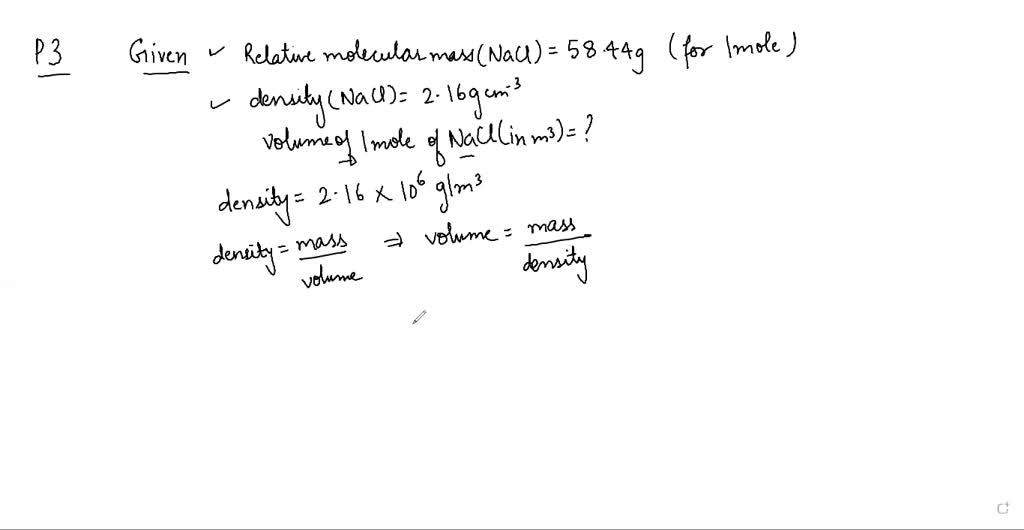 P3 Given ✓ Relative molecular mass (NaCl) = 58.44g (for 1mole)
✓ density (NaCl) = 2.16 g cm⁻³
volume of 1 mole of NaCl (in m³) = ?
density = 2.16 × 10⁶ g/m³
density = mass/volume ⇒ volume = mass/density